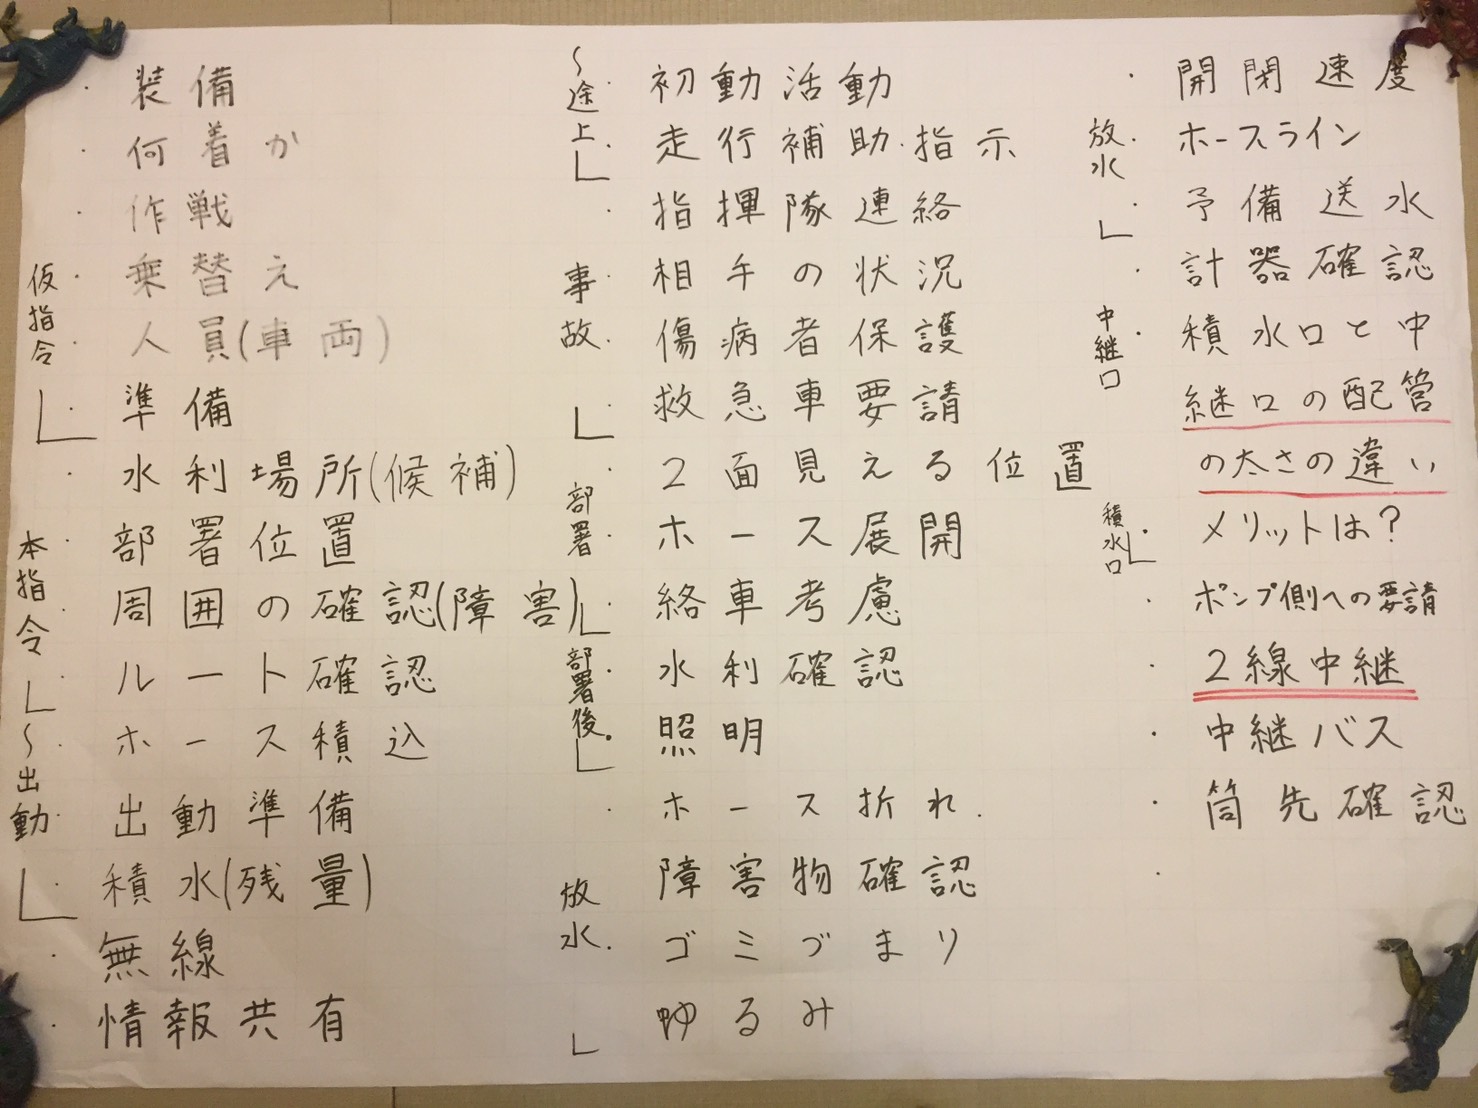 装備
何着か
作戦
乗替え
仮指令
人員(車両)
準備
水利場所(候補)
部署位置
本指令
周囲の確認(障害)
ルート確認
ホース積込
～出動
出動準備
積水(残量)
無線
情報共有
～途上
初動活動
走行補助・指示
指揮隊連絡
事故
相手の状況
傷病者保護
救急車要請
部署
2面見える位置
ホース展開
絡車考慮
部署後
水利確認
照明
放水
ホース折れ.
障害物確認
ゴミづまり
ゆるみ
放水
開閉速度
ホースライン
予備送水
中継口
計器確認
積水口と中
継口の配管
の太さの違い
積水口
メリットは?
ポンプ側への要請
2線中継
中継バス
筒先確認